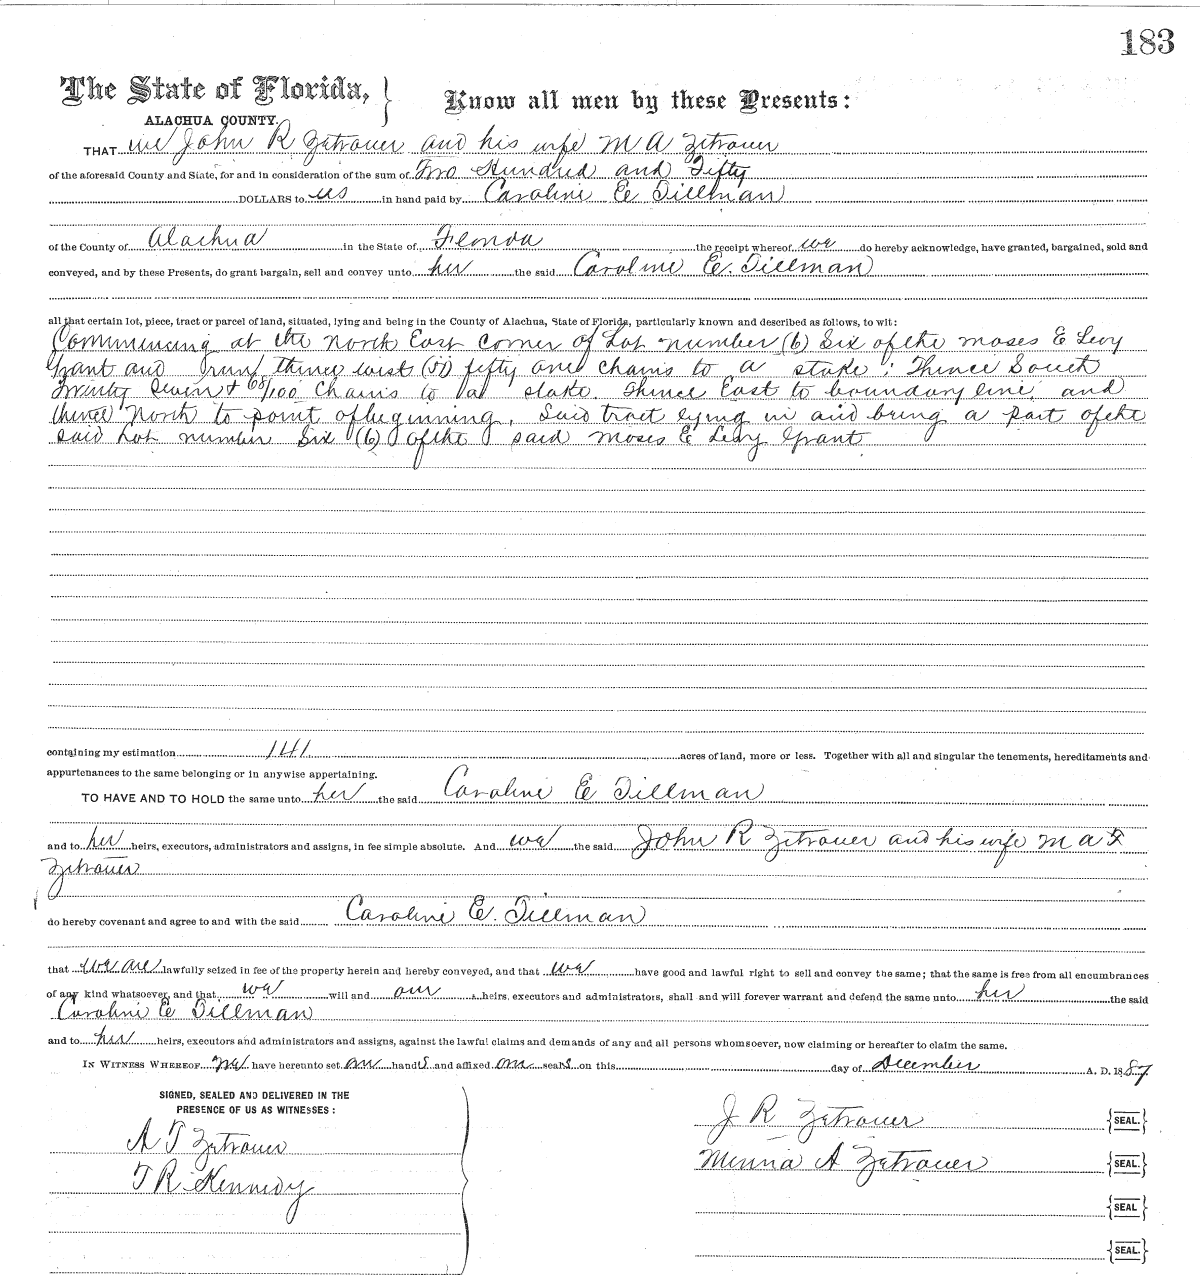 183
The State of Florida,
ALACHUA COUNTY.
Know all men by these Presents:
THAT we John R Zetrouer and his wife M A Zetrouer
of the aforesaid County and State, for and in consideration of the sum of Two Hundred and Fifty
DOLLARS to us in hand paid by Caroline E Tillman
of the County of Alachua in the State of Florida the receipt whereof we do hereby acknowledge, have granted, bargained, sold and
conveyed, and by these Presents, do grant bargain, sell and convey unto her the said Caroline E. Tillman
all that certain lot, piece, tract or parcel of land, situated, lying and being in the County of Alachua, State of Florida, particularly known and described as follows, to wit:
Commencing at the North East Corner of Lot number (6) Six of the Moses E Levy
Grant and thence west (51) fifty one chains to a stake; Thence South
Twenty Seven + 68/100 Chains to a stake. Thence East to boundary line, and
thence North to point of beginning, Said tract lying in and being a part of the
said Lot number Six (6) of the said Moses E Levy Grant
containing my estimation 141 acres of land, more or less. Together with all and singular the tenements, hereditaments and
appurtenances to the same belonging or in anywise appertaining.
TO HAVE AND TO HOLD the same unto her the said Caroline E Tillman
and to her heirs, executors, administrators and assigns, in fee simple absolute. And we the said John R Zetrouer and his wife M A Z
Zetrouer
do hereby covenant and agree to and with the said Caroline E. Tillman
that we are lawfully seized in fee of the property herein and hereby conveyed, and that we have good and lawful right to sell and convey the same; that the same is free from all encumbrances
of any kind whatsoever, and that we will and our heirs, executors and administrators, shall and will forever warrant and defend the same unto her the said
Caroline E Tillman
and to her heirs, executors and administrators and assigns, against the lawful claims and demands of any and all persons whomsoever, now claiming or hereafter to claim the same.
IN WITNESS WHEREOF we have hereunto set our hands and affixed our seals on this day of December A. D. 1887.
SIGNED, SEALED AND DELIVERED IN THE
PRESENCE OF US AS WITNESSES:
J R Zetrouer {SEAL.}
A T Zetrouer
Minna A Zetrouer {SEAL.}
T R Kennedy
{SEAL}
{SEAL.}